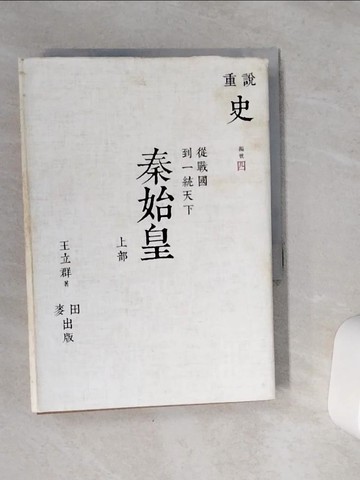 重說
史
編號四
從戰國
到一統天下
秦始皇
上部
王立群 著
麥田出版